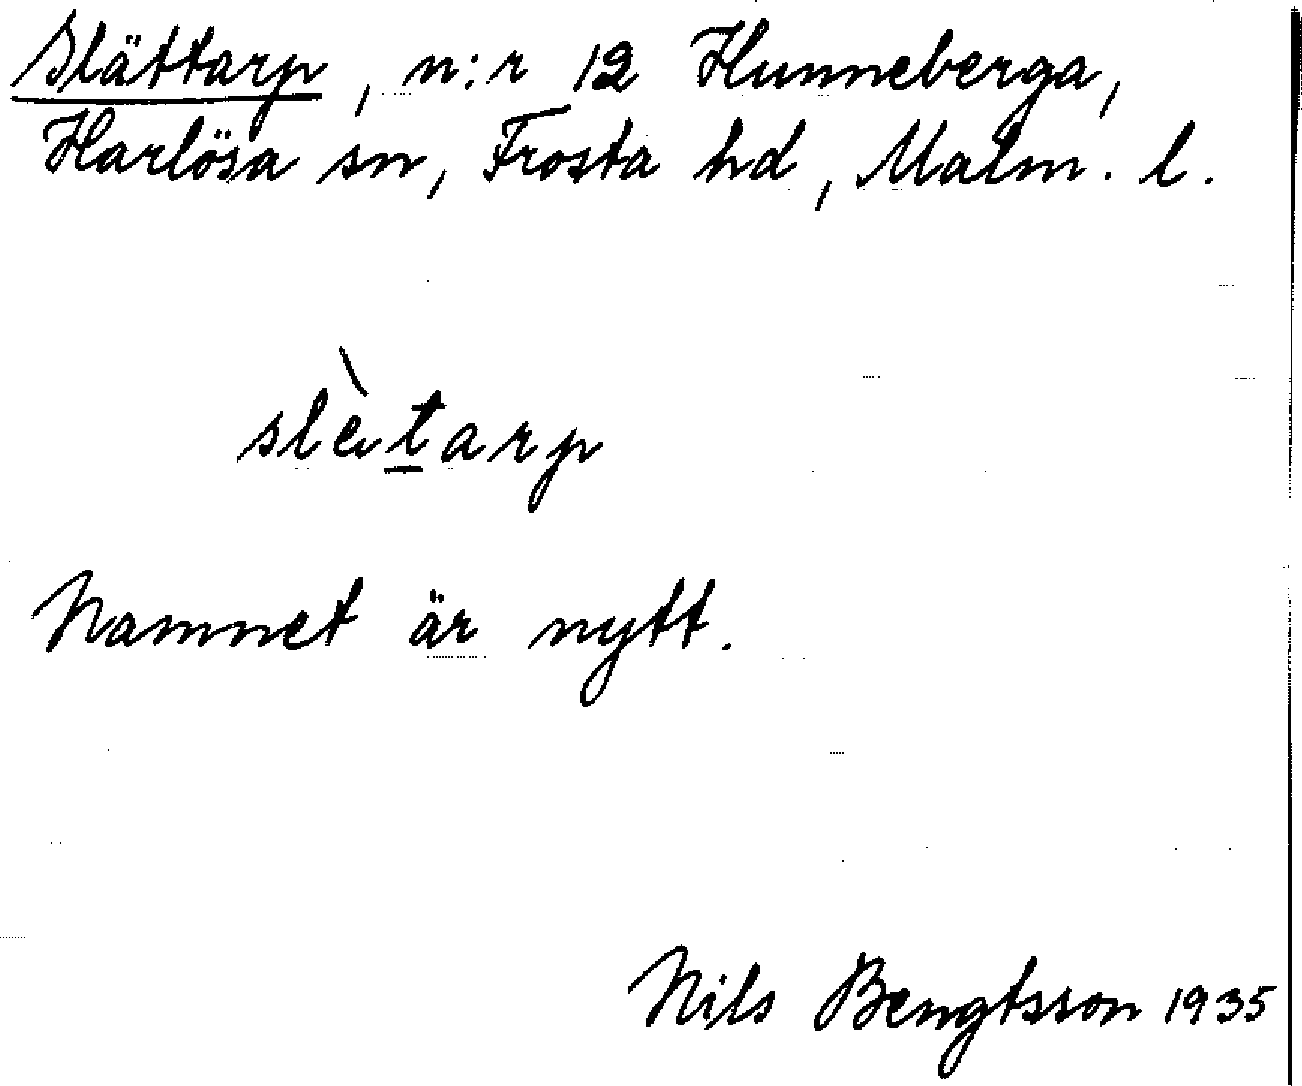 Slättarp, n:r 12 Hunneberga,
Harlösa sn, Frosta hd, Malm. l.
slètarp
Namnet är nytt.
Nils Bengtsson 1935